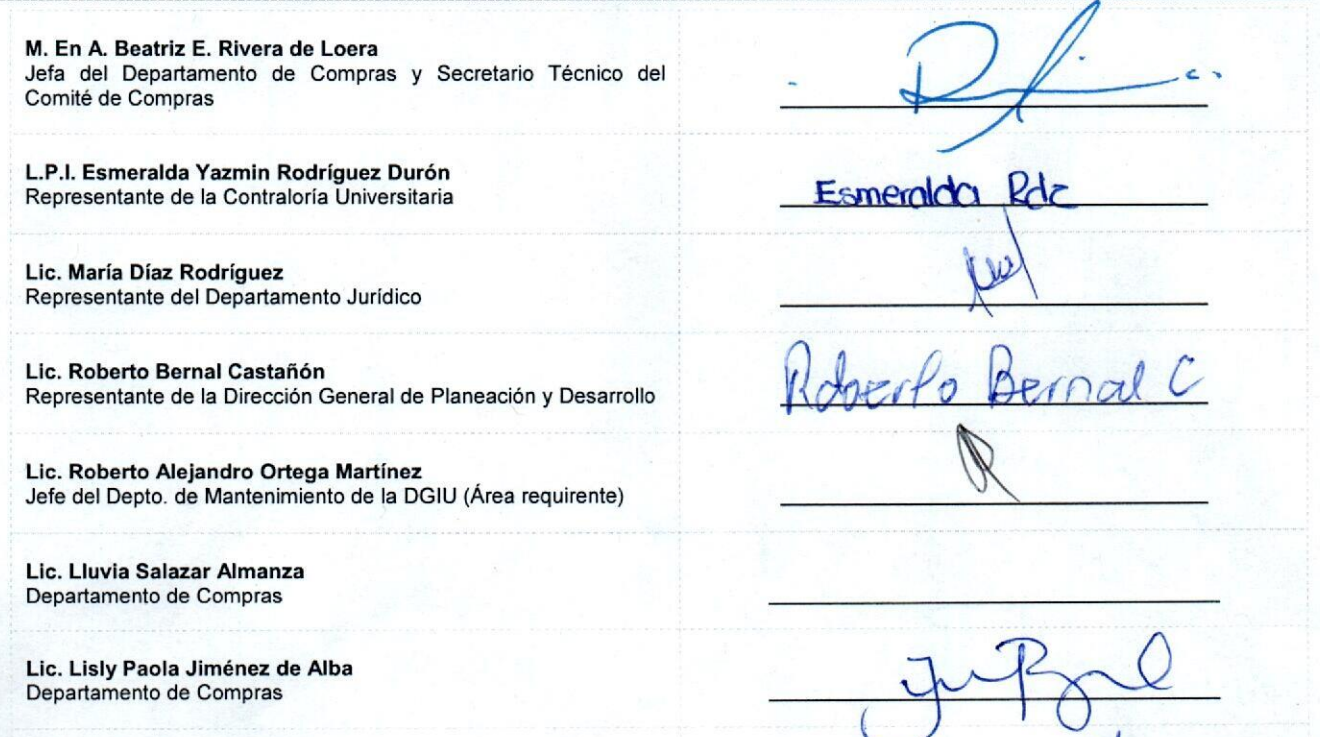 M. En A. Beatriz E. Rivera de Loera
Jefa del Departamento de Compras y Secretario Técnico del
Comité de Compras
L.P.I. Esmeralda Yazmin Rodríguez Durón
Representante de la Contraloría Universitaria
Esmeralda Rdz
Lic. María Díaz Rodríguez
Representante del Departamento Jurídico
Lic. Roberto Bernal Castañón
Representante de la Dirección General de Planeación y Desarrollo
Roberto Bernal C
Lic. Roberto Alejandro Ortega Martínez
Jefe del Depto. de Mantenimiento de la DGIU (Área requirente)
Lic. Lluvia Salazar Almanza
Departamento de Compras
Lic. Lisly Paola Jiménez de Alba
Departamento de Compras